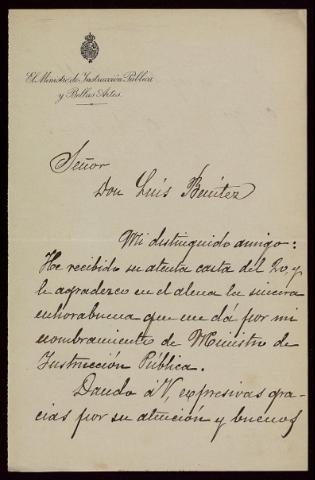 El Ministro de Instrucción Pública
y Bellas Artes.
Señor
Don Luis Benítez
Mi distinguido amigo:
He recibido su atenta carta del 20, y
le agradezco en el alma la sincera
enhorabuena que me dá por mi
nombramiento de Ministro de
Instrucción Pública.
Dando á V, expresivas gra-
cias por su atención y buenos